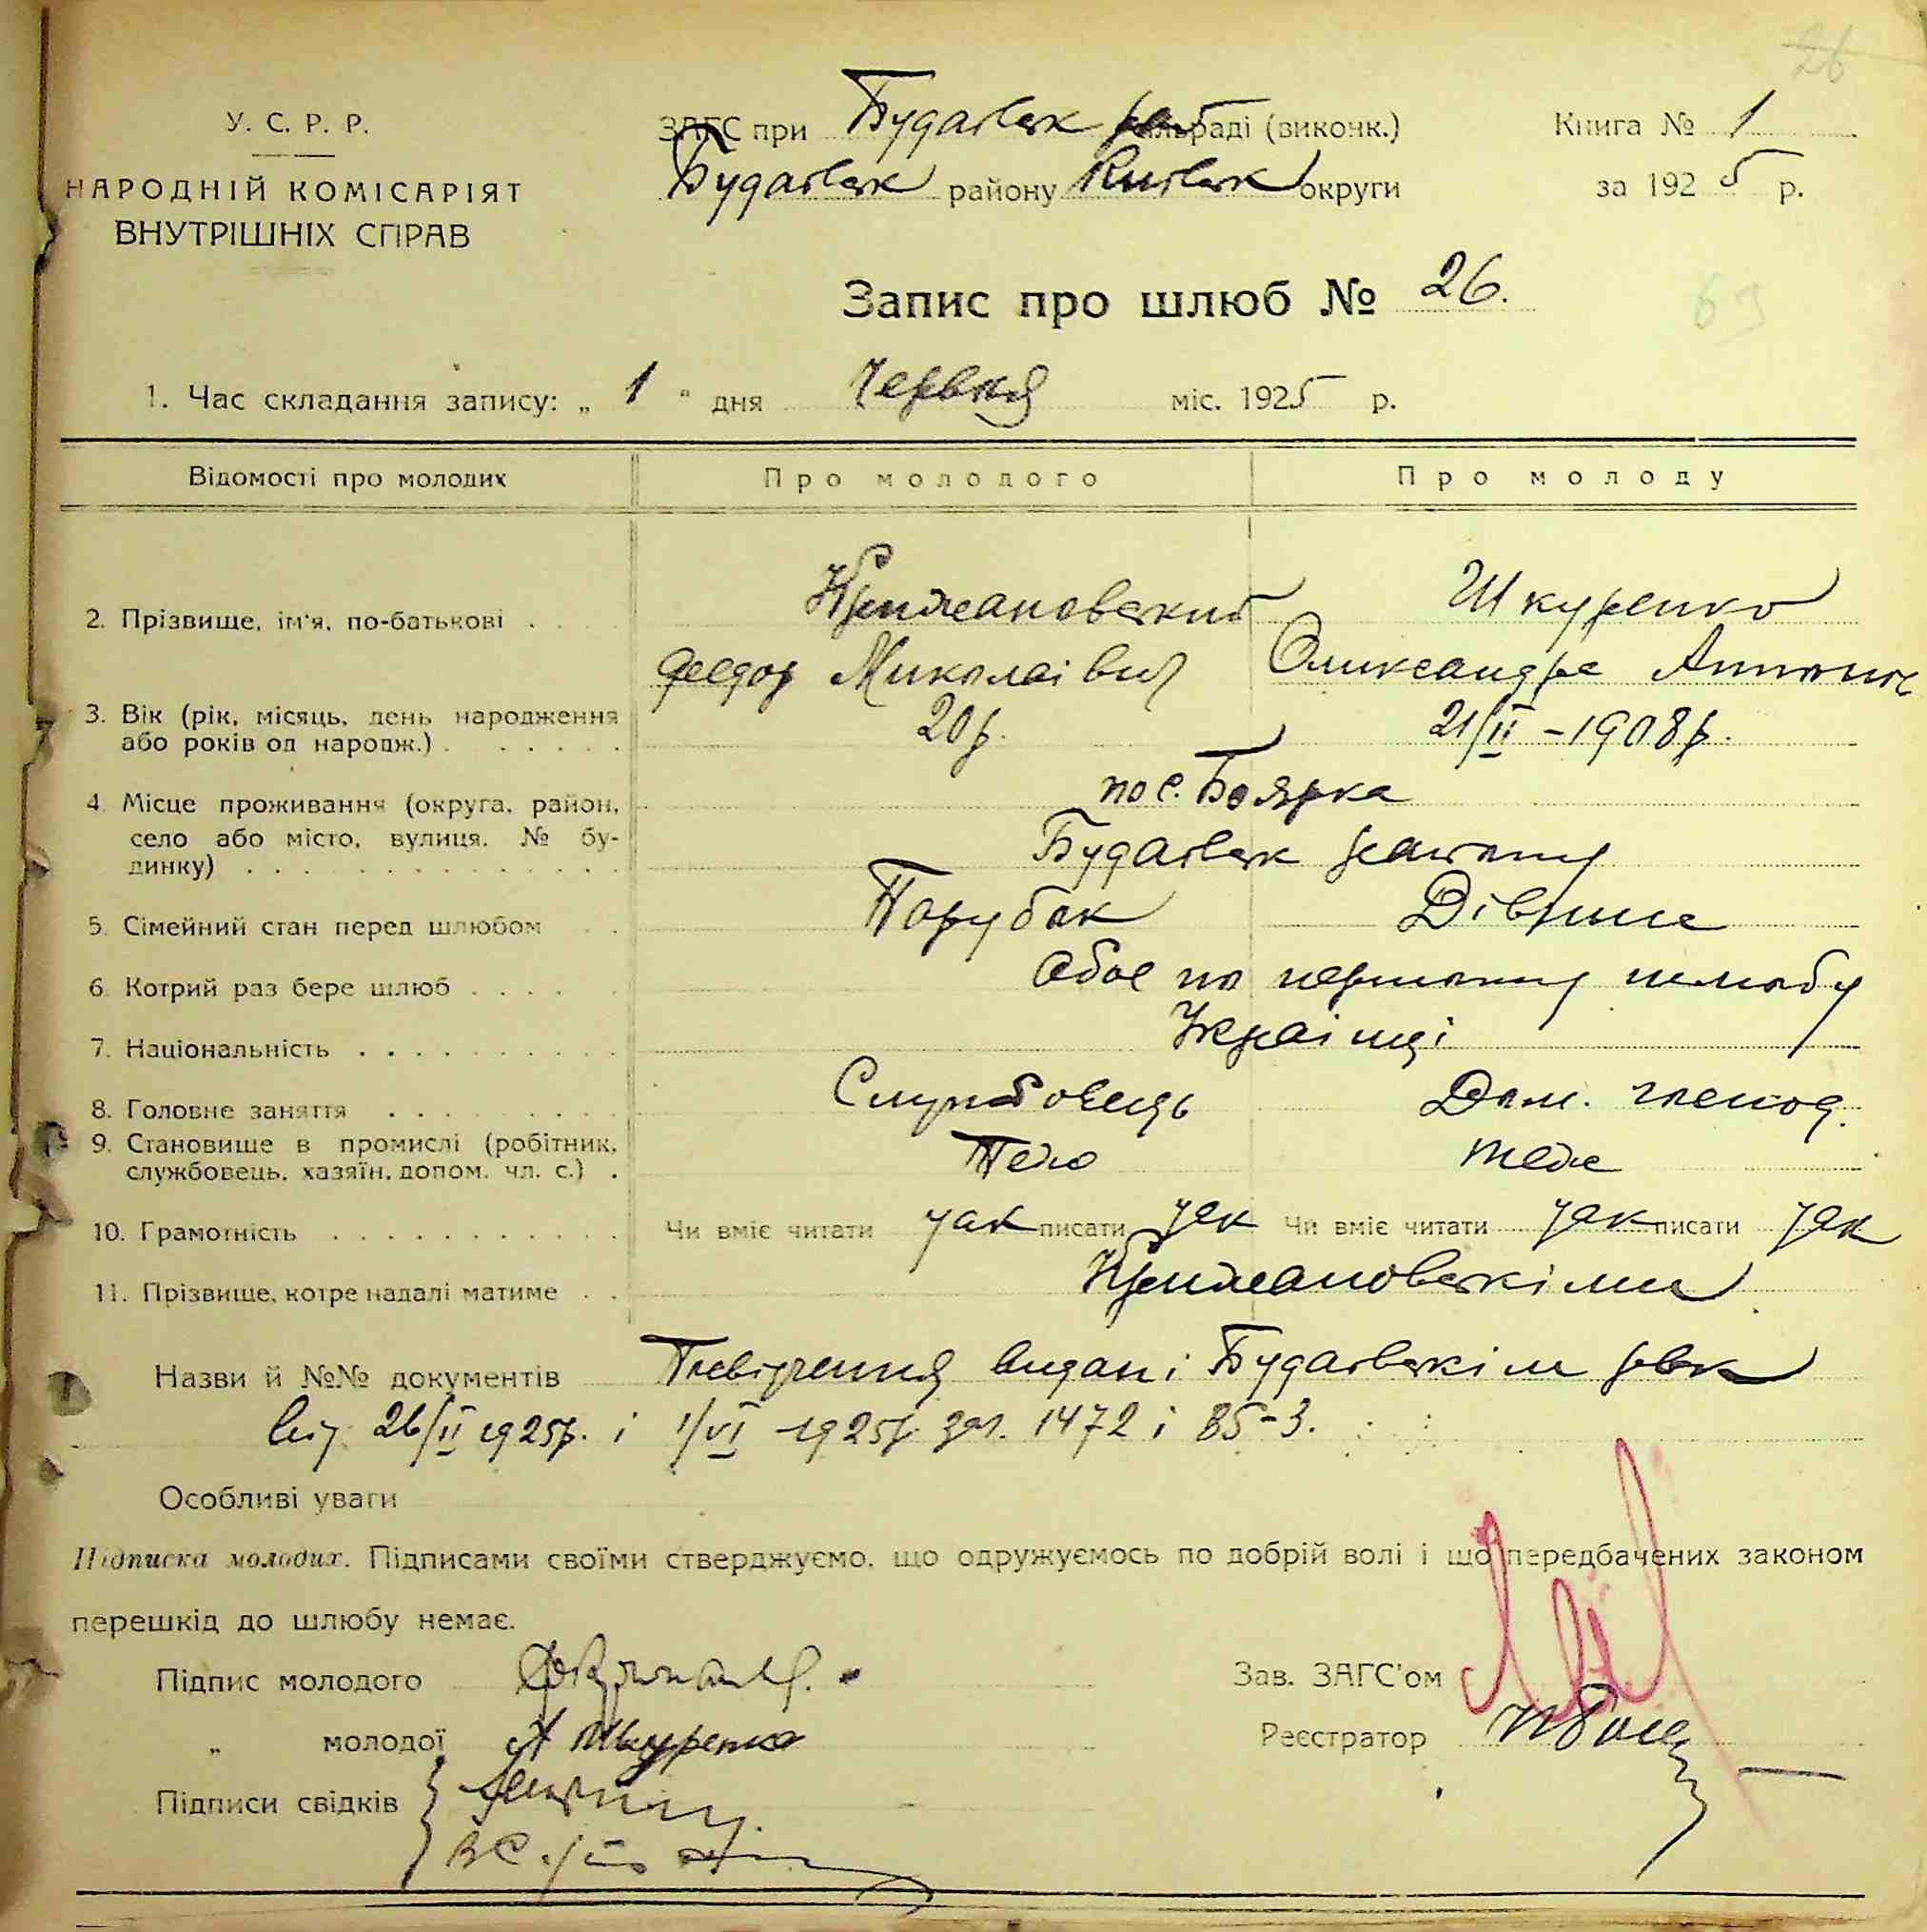 26
У. С. Р. Р.
НАРОДНІЙ КОМІСАРІЯТ
ВНУТРІШНІХ СПРАВ
ЗАГС при Будаївськ рай сільраді (виконк.)
Будаївськ району Київськ округи
Книга № 1
за 1925 р.
Запис про шлюб № 26.
69
1. Час складання запису: „ 1 " дня Червня міс. 1925 р.
Відомості про молодих Про молодого Про молоду
2. Прізвище, ім'я, по-батькові . Крижановський Шкуренко
Федор Миколаівич Олександра Антонів
3. Вік (рік, місяць, день народження
або років од народж.) . 20 р. 21/II – 1908 р.
4. Місце проживання (округа, район,
село або місто, вулиця, № бу-
динку) пос. Боярка
Будаївськ району
5. Сімейний стан перед шлюбом Парубок Дівчина
6. Котрий раз бере шлюб Обоє по першому шлюбу
7. Національність Украінці
8. Головне заняття Службовець Дом. господ.
9. Становище в промислі (робітник,
службовець, хазяїн, допом. чл. с.) . Теж теж
10. Грамотність Чи вміє читати так писати так Чи вміє читати так писати так
11. Прізвище, котре надалі матиме Крижановськіми
Назви й №№ документів Посвідчення видані Будаівськім рвк
від 26/II 1925р. і 1/VI 1925р за 1472 і 85-3.
Особливі уваги
Підписка молодих. Підписами своїми стверджуємо, що одружуємось по добрій волі і що передбачених законом
перешкід до шлюбу немає.
Підпис молодого
Зав. ЗАГС'ом
„ молодої А Шкуренко
Реєстратор
Підписи свідків